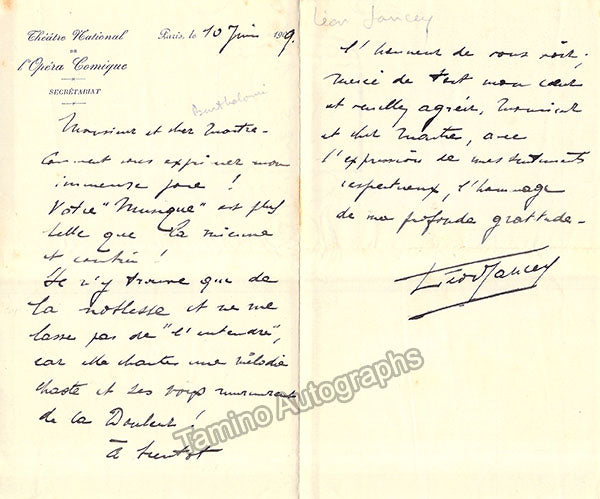 Théâtre National
DE
l'Opéra Comique
SECRÉTARIAT
Paris, le 10 Juin 1909.
Bartholoni
Monsieur et cher Maitre -
Comment vous exprimer mon
immense joie !
Votre "Musique" est plus
belle que la mienne
et
Je n'y trouve que de
la noblesse et ne me
lasse pas de "l'entendre",
car elle chante une mélodie
chaste et ses voix murmurent
de la Douleur !
à bientot
Léon Jancey
l'honneur de vous voir,
merci de tout mon cœur
et veuillez agréer, Monsieur
et cher Maitre, avec
l'expression de mes sentiments
respectueux, l'hommage
de ma profonde gratitude -
Léon Jancey
Tamino Autographs